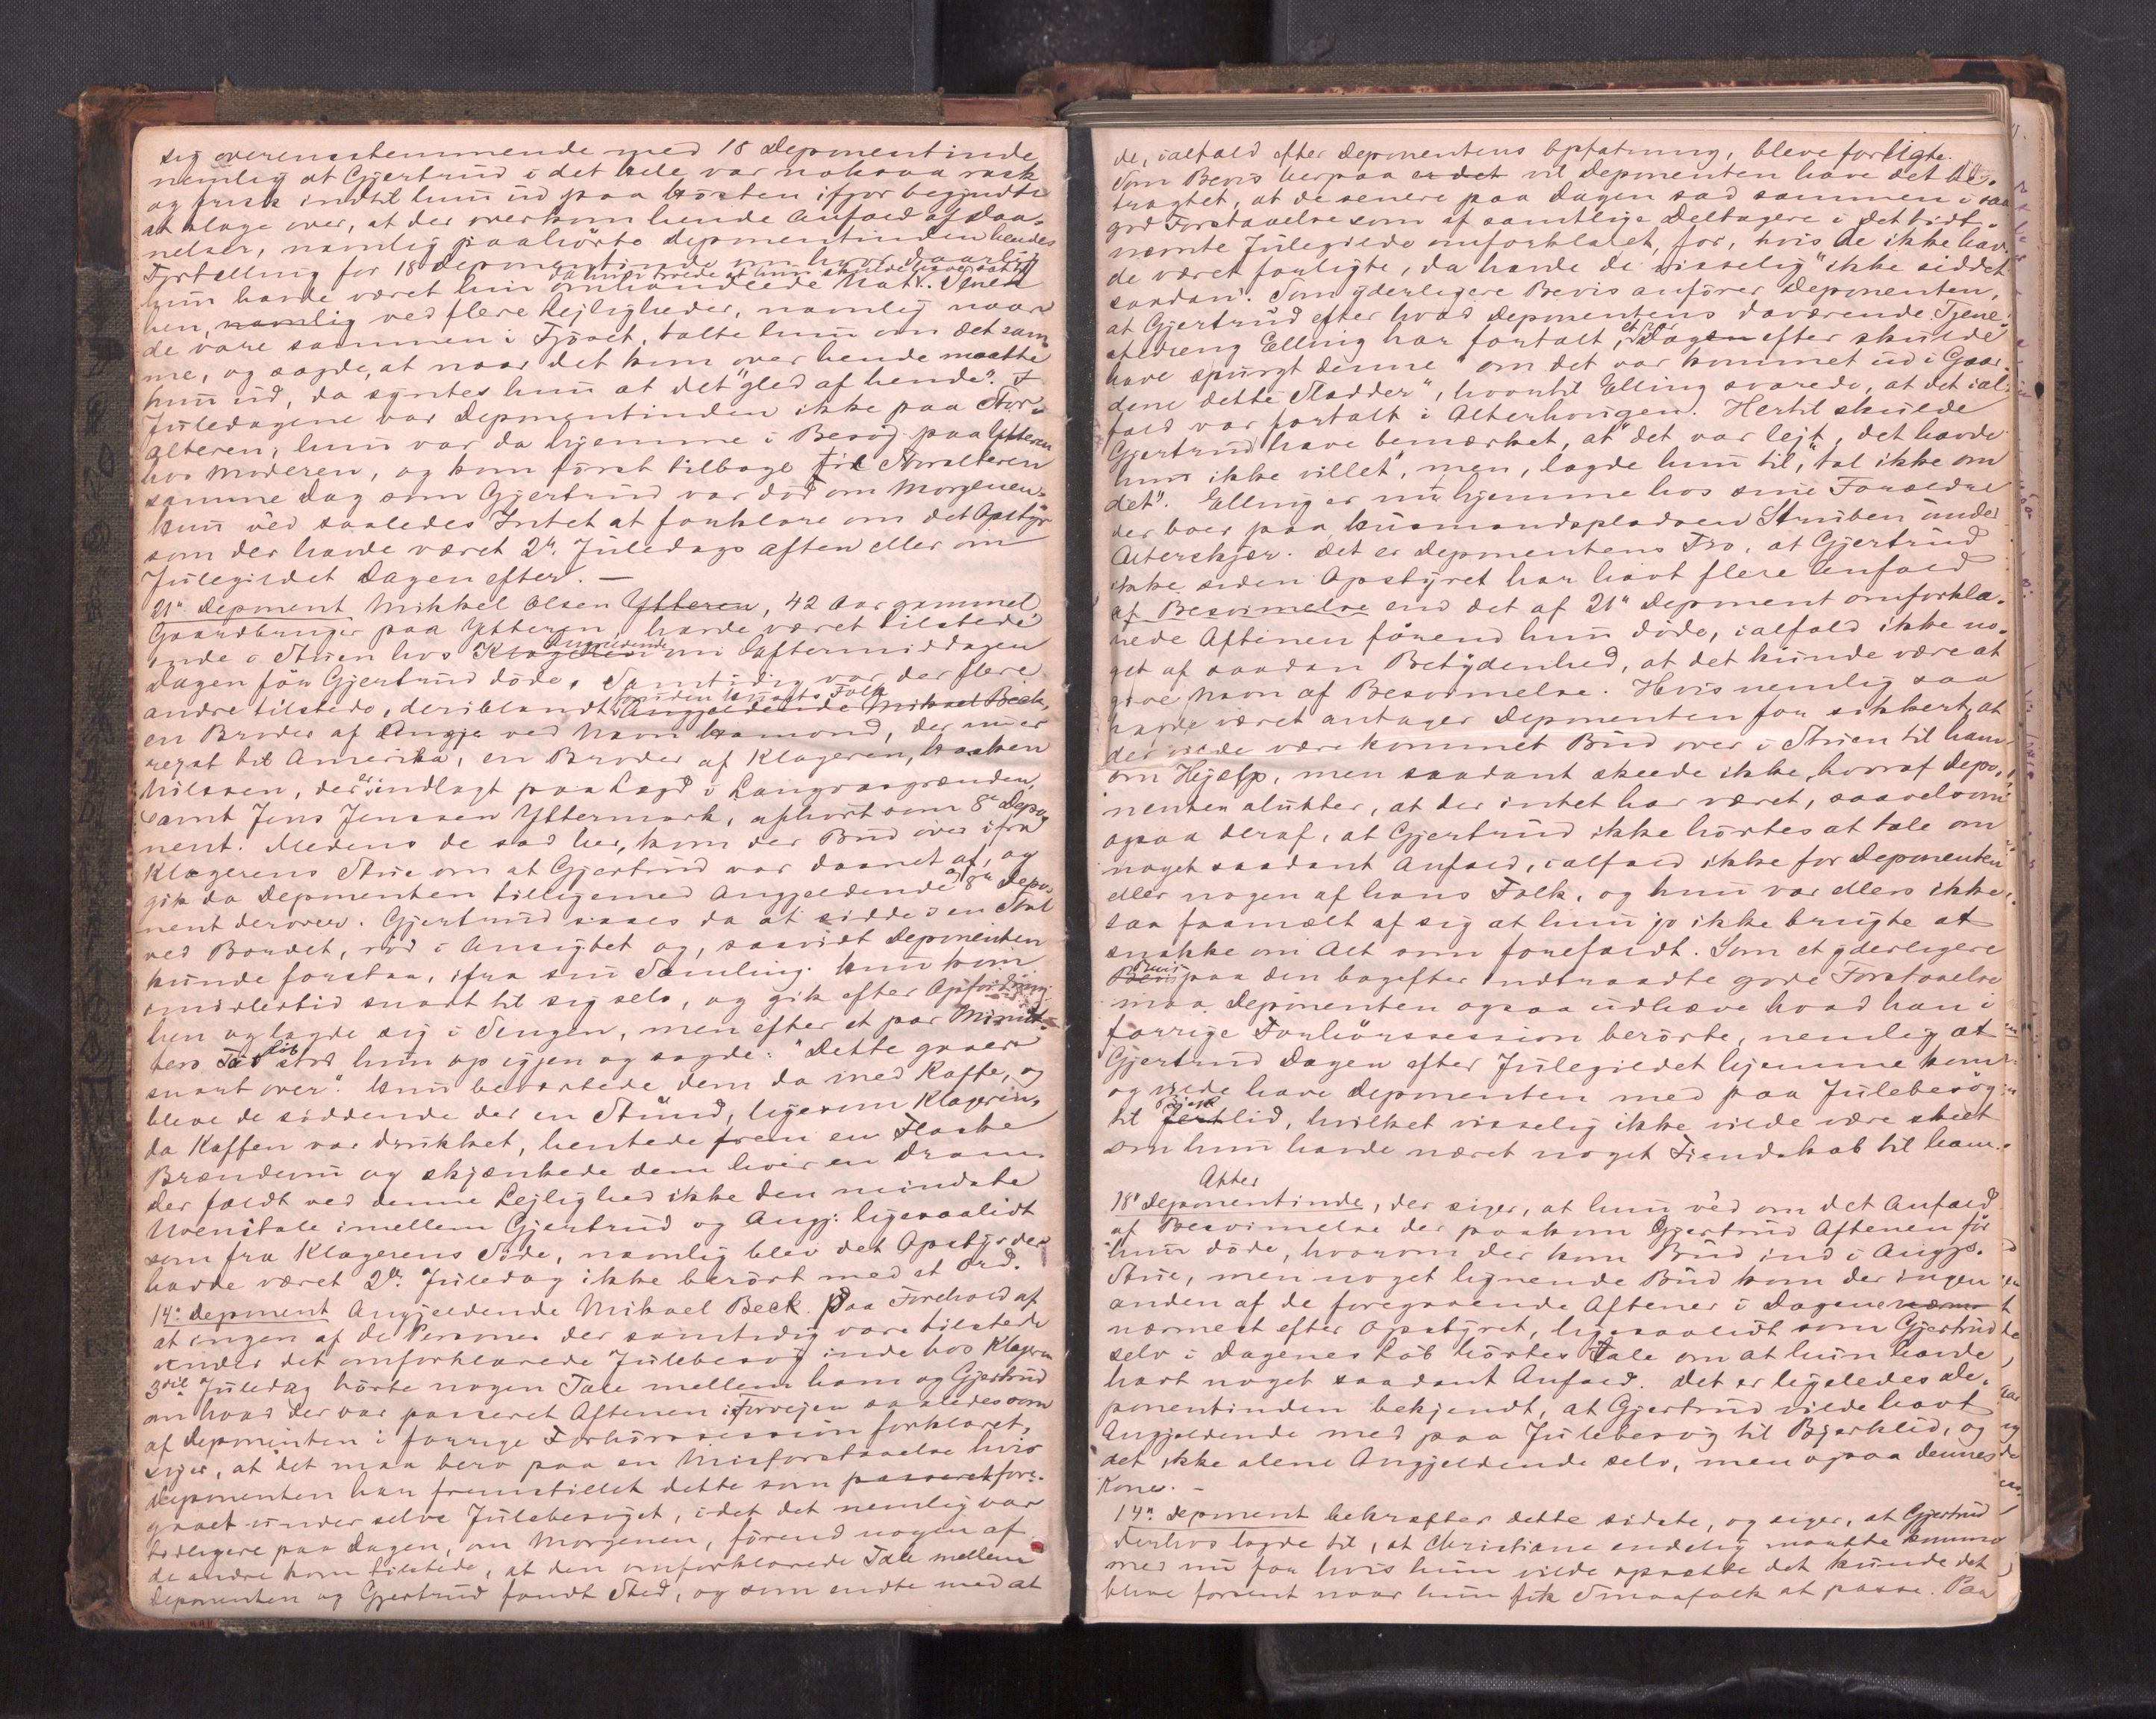 sig overensstemmende med 18 Deponentinde
nemlig at Gjertrud i det hele var noksaa rask
og frisk indtil hun ud paa Hösten ifjor begyndte
at klage over, at der overkom hende Anfald af Daa-
nelser, namlig paahörte deponentinden hendes
Fortælling for 18 deponentinde om hvor daarlig
hun havde været hin omhandlede Nat. Senere
hen, namlig ved flere Lejligheder, namlig naar
de vare sammen i Fjöset, talte hun om det sam-
me, og sagde, at naar det kom over hende maatte
hun ud, da syntes hun at det "gled af hende". I
Juledagene var deponentinden ikke paa Stor-
alteren, hun var da hjemme i Besög paa Ytteren
hos Moderen, og kom först tilbage til Storalteren
samme Dag som Gjertrud var död om Morgenen.
Hun véd saaledes Intet at forklare om det Opstyr
som der havde været 2n. Juledags aften eller om
Julegildet Dagen efter. —
21n Deponent Mikkel Olsen Ytteren, 42 Aar gammel
Gaardbruger paa Ytteren, havde været tilstede
inde i Stuen hos Klageren Angjeldende om Eftermiddagen
Dagen för Gjertrud döde. Samtidig var der flere
andre tilstede, deriblandt Angjeldende Mikael Beck,
en Broder af Angje ved Navn Hamond, der nu er
rejst til Amerika, en Broder af Klageren, Haaken
Nilssen, der er indlagt paa Lægd i Langvasgrænden,
samt Jens Jenssen Yttermark, afhört som 8n Depo-
nent. Medens de sad her, kom der Bud over ifra
Klagerens Stue om at Gjertrud var daanet af, og
gik da Deponenten tilligemed Angjeldende og 8n Depo-
nent derover. Gjertrud saaes da at sidde i en Stol
ved Bordet, röd i Ansigtet og, saavidt Deponenten
kunde forstaa, ifra sin Samling. Hun kom
imidlertid snart til sig selv, og gik efter Opfordring
hen og lagde sig i Sengen, men efter et par Minut-
ters Löb stod hun op igjen og sagde: "Dette gaaer
snart over". Hun beværtede dem da med Kaffe, og
bleve de siddende der en Stund, ligesom Klageren,
da Kaffen var drukket, hentede frem en Flaske
Brændevin og skjænkede dem hver en Dram.
Der faldt ved denne Lejlighed ikke den mindste
Uvenstale imellem Gjertrud og Angj: ligesaalidt
som fra Klagerens Side, namlig blev det Opstyr der
havde været 2n Juledag ikke berört med et Ord.
14n deponent Angjeldende Mikael Beck. Paa Forehold af
at ingen af de Personer der samtidig vare tilstede
under det omforklarede Julebesög inde hos Klageren
3die Juledag hörte nogen Tale mellem ham og Gjertrud
om hvad der var passeret Aftenen iforvejen saaledes som
af Deponenten i forrige Forhörssession forklaret,
siger, at det maa bero paa en Misforstaaelse hvis
Deponenten har fremstillet dette som passeret fore-
gaaet under selve Julebesöget, idet det nemlig var
tidligere paa Dagen, om Morgenen, förend nogen af
de andre kom tilstede, at den omforklarede Tale mellem
Deponenten og Gjertrud fandt Sted, og som endte med at
de, ialfald efter Deponentens Opfatning, bleve forligte.
Som Bevis herpaa er det vil Deponenten have det be-
tragtet, at de senere paa Dagen sad sammen i saa
god Forstaaelse som af samtlige Deltagere i det tidt-
nævnte Julegilde omforklaret, for, hvis de ikke hav-
de været forligte, da havde de visselig "ikke siddet
saadan". Som yderligere Bevis anförer Deponenten,
at Gjertrud efter hvad Deponentens daværende Tjene-
stedreng Elling har fortalt, et par Dagen efter skulde
have spurgt denne "om det var kommet ud i Gaar-
dene dette Sladder", hvortil Elling svarede, at det ial-
fald var fortalt i Alterhougen. Hertil skulde
Gjertrud have bemærket, at "det var lejt, det havde
hun ikke villet", men, lagde hun til, "tal ikke om
det". Elling er nu hjemme hos sine Forældre
der boer paa Husmandspladsen Struben under
Alterskjær. Det er Deponentens Tro, at Gjertrud
ikke siden Opstyret har havt flere Anfald
af Besvimelse end det af 21n Deponent omforkla-
rede Aftenen förend hun döde, ialfald ikke no-
get af saadan Betydenhed, at det kunde være at
give Navn af Besvimelse. Hvis nemlig saa
havde været antager Deponenten for sikkert, at
der vilde være kommet Bud over i Stuen til ham
om Hjælp, men saadant skeede ikke, hvoraf Depo-
nenten slutter, at der intet har været, saavelsom
ogsaa deraf, at Gjertrud ikke hörtes at tale om
noget saadant Anfald, ialfald ikke for Deponenten
eller nogen af hans Folk, og hun var ellers ikke
saa faamælt af sig at hun jo ikke brugte at
snakke om Alt som forefaldt. Som et yderligere
Bevis paa den bagefter indtraadte gode Forstaaelse
maa Deponenten ogsaa udhæve hvad han i
forrige Forhörssession berörte, nemlig at
Gjertrud Dagen efter Julegildet hjemme kom
og vilde have Deponenten med paa Julebesög
til Bjerklid, hvilket visselig ikke vilde være skeet
om hun havde næret noget Fiendskab til ham.
Atter
18n Deponentinde, der siger, at hun véd om det Anfald
af Besvimelse der paakom Gjertrud Aftenen för
hun döde, hvorom der kom Bud ind i Angjs.
Stue, men noget lignende Bud kom der ingen
anden af de foregaaende Aftener i Dagene
nærmest efter Opstyret, ligesaalidt som Gjertrud
selv i Dagenes Löb hörtes tale om at hun havde
havt noget saadant Anfald. Det er ligeledes De-
ponentinden bekjendt, at Gjertrud vilde havt
Angjeldende med paa Julebesög til Bjerklid, og
det ikke alene Angjeldende selv, men ogsaa dennes
Kone. —
14n Deponent bekræfter dette sidste, og siger, at Gjertrud
derhos lagde til, at Christiane endelig maatte komme
med nu for hvis hun vilde opsætte det kunde det
blive forsent naar hun fik Smaafolk at passe. Paa